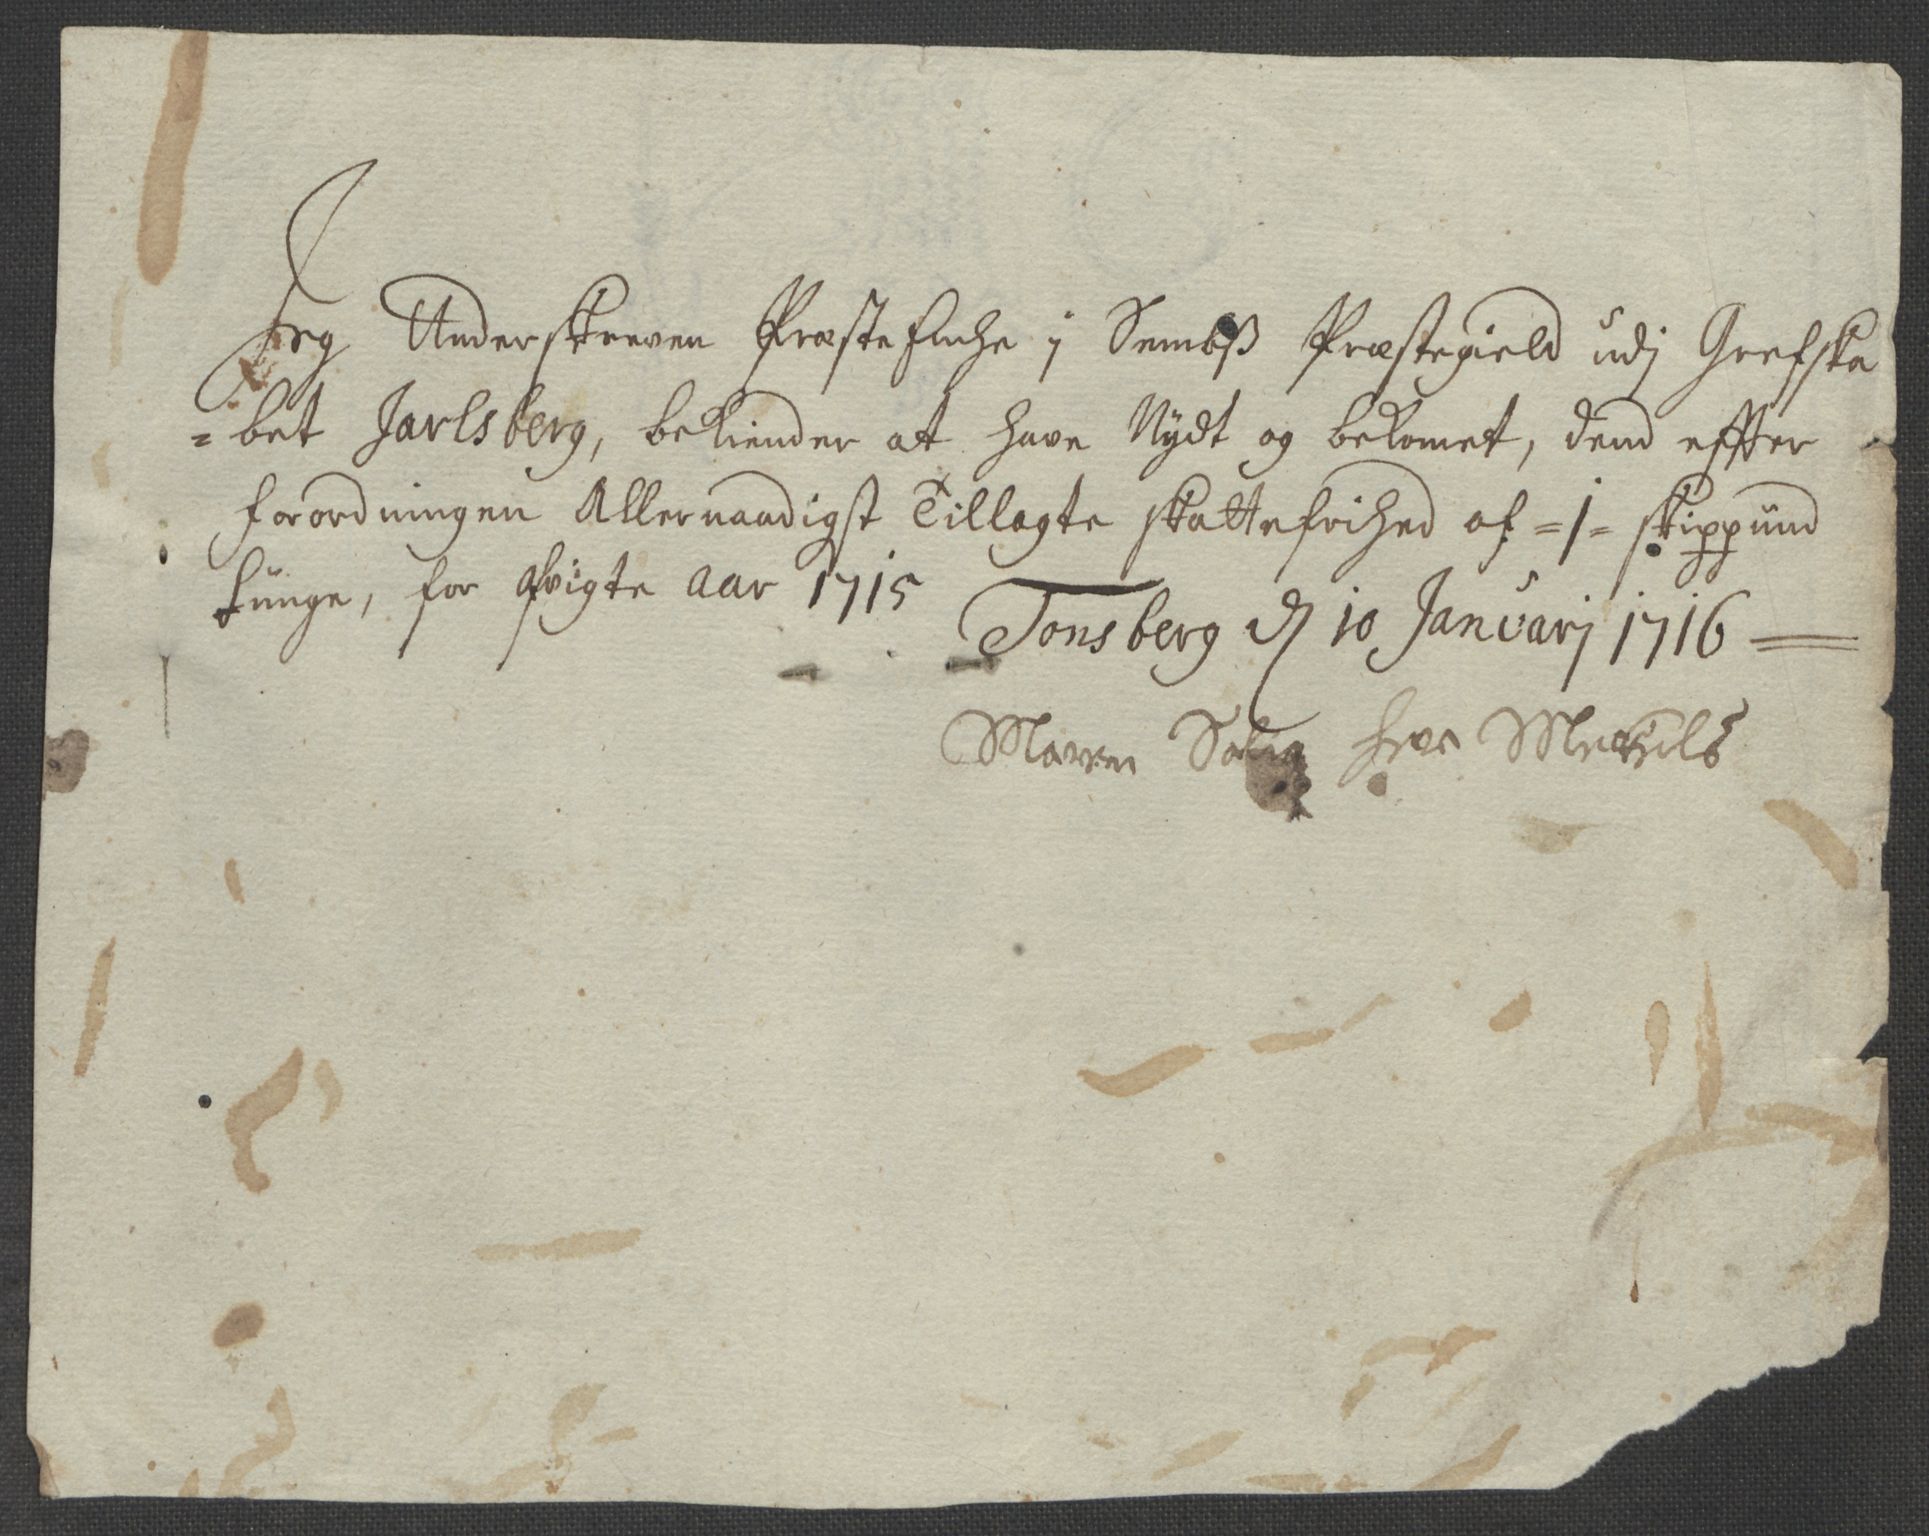 Jeg Underskreven Præste Enche i Sembß Præstegield udj Grefska
=bet Jarlsberg, bekiender at have Nÿdt og bekomet, dend effter
forordningen Allernaadigst Tillagte skattefrihed af =1= skippund
tunge, for afvigte Aar 1715
Tonsberg d 10 Januarj 1716
Maren